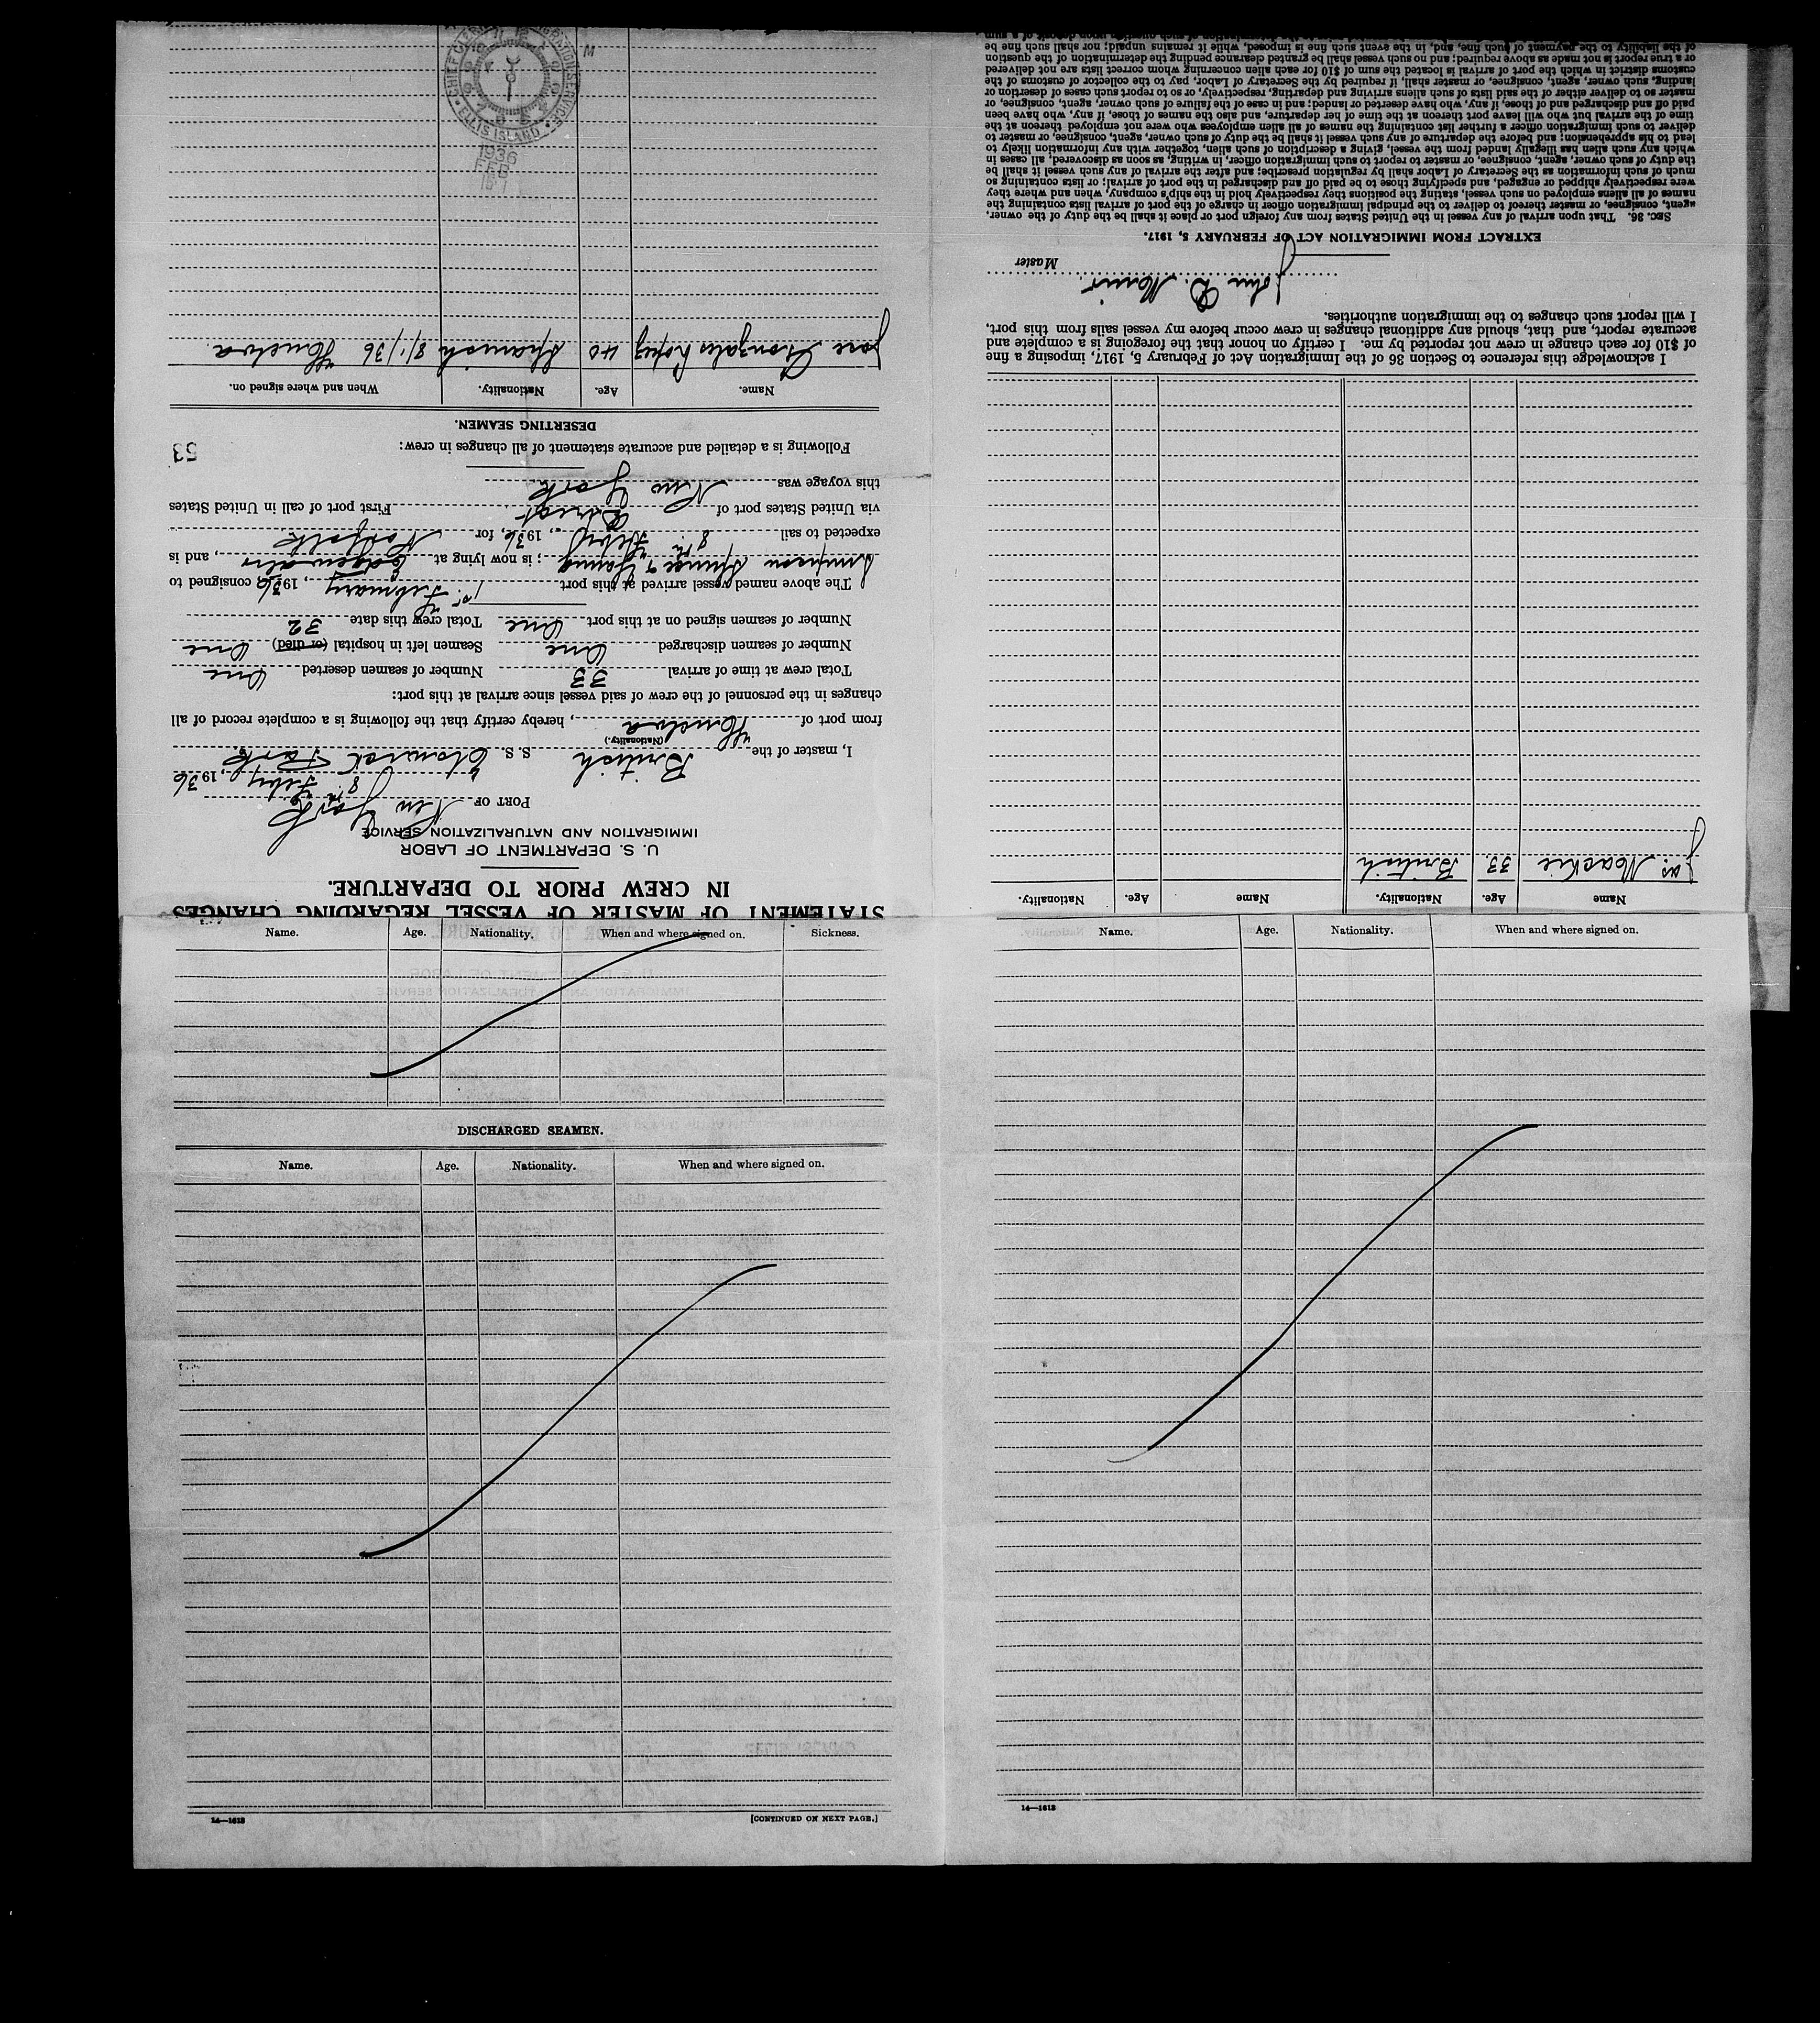 STATEMENT OF MASTER OF VESSEL REGARDING CHANGES
IN CREW PRIOR TO DEPARTURE.
U. S. DEPARTMENT OF LABOR
IMMIGRATION AND NATURALIZATION SERVICE
PORT OF New York
8th Feby, 1936
I, master of the British S. S.
(Nationality.)
from port of Huelva, hereby certify that the following is a complete record of all
changes in the personnel of the crew of said vessel since arrival at this port:
Total crew at time of arrival 33 Number of seamen deserted One
Number of seamen discharged One Seamen left in hospital (or died) One
Number of seamen signed on at this port One Total crew this date 32
The above named vessel arrived at this port 1st February, 1936, consigned to
Simpson Spence & Young; is now lying at Edgewater, and is
expected to sail 8th Feby, 1936, for Norfolk
via United States port of Direct First port of call in United States
this voyage was New York
Following is a detailed and accurate statement of all changes in crew:
53
DESERTING SEAMEN.
Name. Age. Nationality. When and where signed on.
Jose Gonzales Lopez 40 Spanish 8/1/36 Huelva.
M
CHIEF CLERK IMMIGRATION SERVICE
ELLIS ISLAND
1936
FEB
Name Age. Nationality. Name Age. Nationality.
Jas. Mackie 33. British
I acknowledge this reference to Section 36 of the Immigration Act of February 5, 1917, imposing a fine
of $10 for each change in crew not reported by me. I certify on honor that the foregoing is a complete and
accurate report, and that, should any additional changes in crew occur before my vessel sails from this port,
I will report such changes to the immigration authorities.
Master
EXTRACT FROM IMMIGRATION ACT OF FEBRUARY 5, 1917.
SEC. 36. That upon arrival of any vessel in the United States from any foreign port or place it shall be the duty of the owner,
agent, consignee, or master thereof to deliver to the principal immigration officer in charge of the port of arrival lists containing the
names of all aliens employed on such vessel, stating the positions they respectively hold in the ship's company, when and where they
were respectively shipped or engaged, and specifying those to be paid off and discharged in the port of arrival; or lists containing so
much of such information as the Secretary of Labor shall by regulation prescribe; and after the arrival of any such vessel it shall be
the duty of such owner, agent, consignee, or master to report to such immigration officer, in writing, as soon as discovered, all cases in
which any such alien has illegally landed from the vessel, giving a description of such alien, together with any information likely to
lead to his apprehension; and before the departure of any such vessel it shall be the duty of such owner, agent, consignee, or master to
deliver to such immigration officer a further list containing the names of all alien employees who were not employed thereon at the
time of the arrival but who will leave port thereon at the time of her departure, and also the names of those, if any, who have been
paid off and discharged and of those, if any, who have deserted or landed; and in case of the failure of such owner, agent, consignee, or
master so to deliver either of the said lists of such aliens arriving and departing, respectively, or so to report such cases of desertion or
landing, such owner, agent, consignee, or master shall, if required by the Secretary of Labor, pay to the collector of customs of the
customs district in which the port of arrival is located the sum of $10 for each alien concerning whom correct lists are not delivered
or a true report is not made as above required; and no such vessel shall be granted clearance pending the determination of the question
of the liability to the payment of such fine, and, in the event such fine is imposed, while it remains unpaid; nor shall such fine be
Name. Age. Nationality. When and where signed on. Sickness.
DISCHARGED SEAMEN.
Name. Age. Nationality. When and where signed on.
14—1613 [CONTINUED ON NEXT PAGE.]
Name. Age. Nationality. When and where signed on.
14—1613